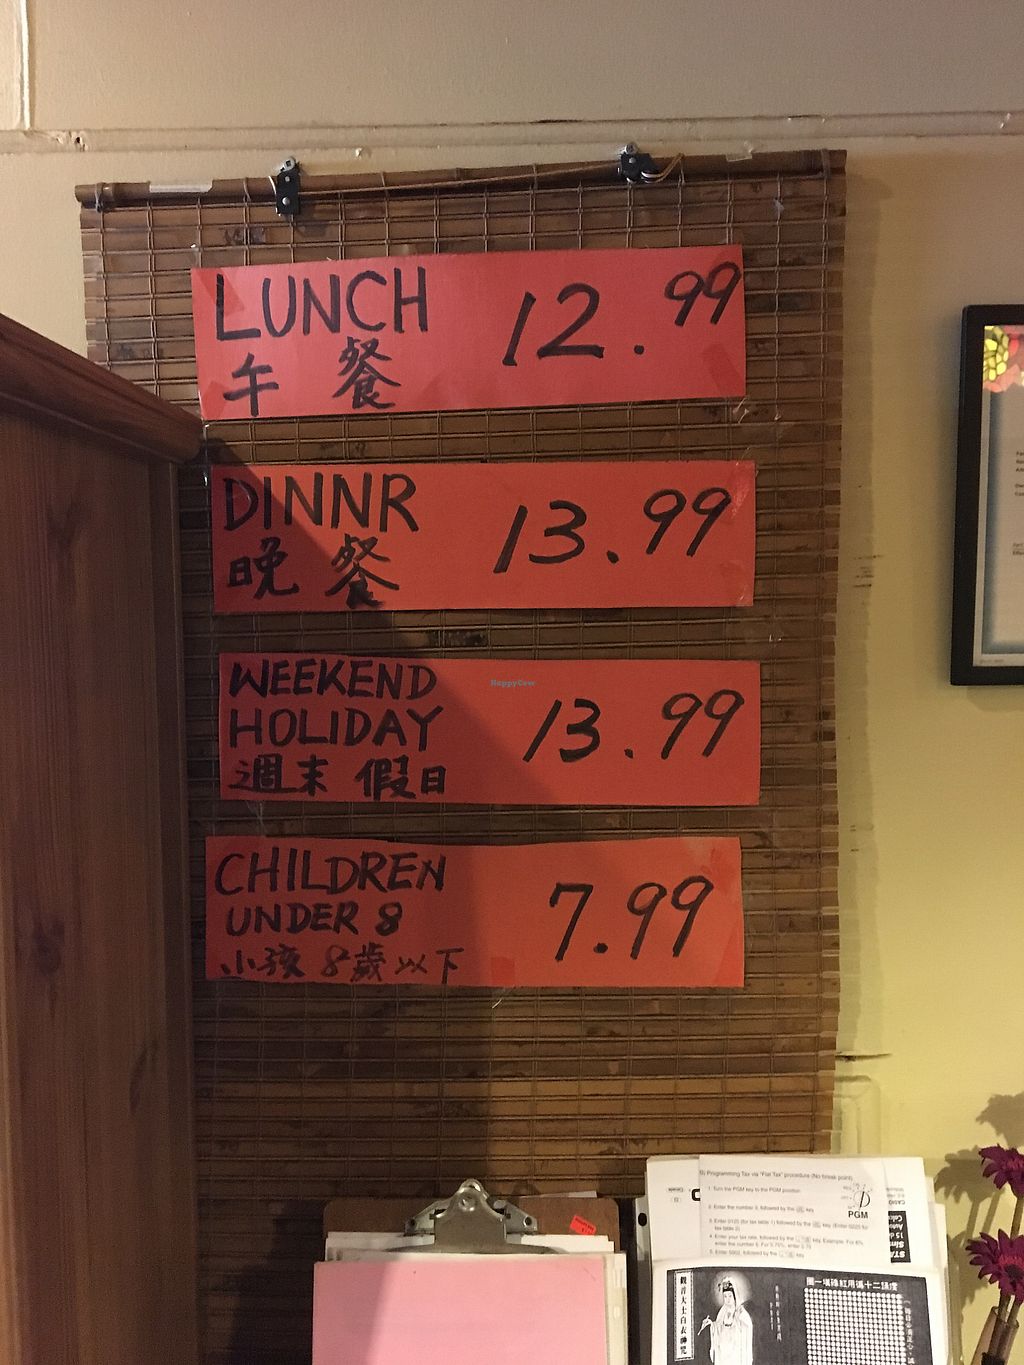 LUNCH 12.99
午餐
DINNR 13.99
晚餐
WEEKEND
HOLIDAY 13.99
週末 假日
CHILDREN
UNDER 8 7.99
小孩 8歲以下
HappyCow
Programming Tax via "Flat Tax" procedure (No break point)
1. Turn the PGM key to the PGM position.
PGM
2. Enter the number 3, followed by the
3. Enter 0125 (for tax table 1) followed by the key (Enter 0225 for
tax table 2)
4. Enter your tax rate, followed by the key. Example: For 6%
5. Enter 5002, followed by the key
CASIO
觀音大士白衣神咒
圖一滿壇紅用誦遍二十誦每